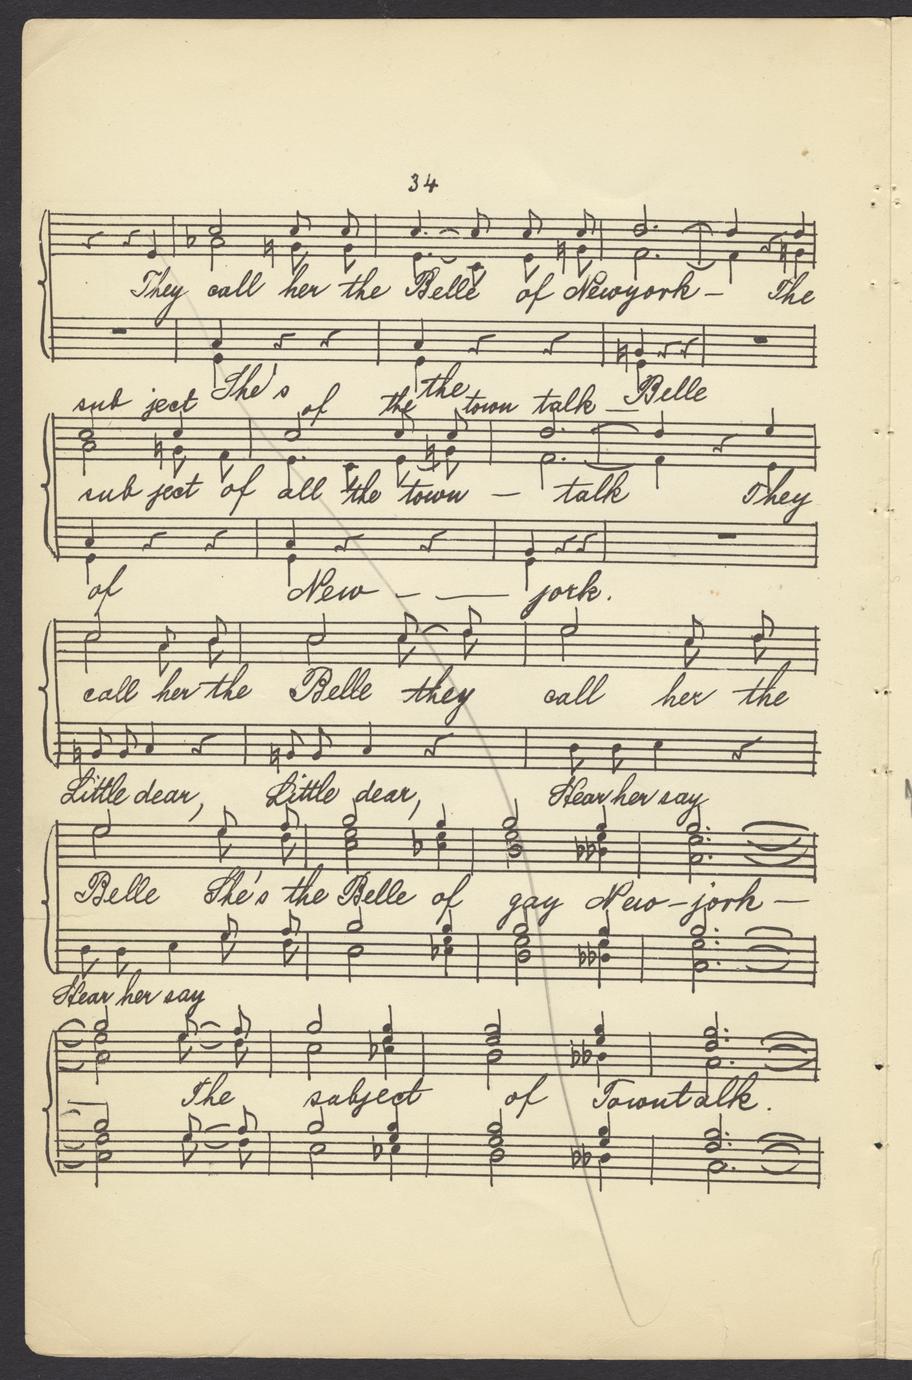 34
They call her the Belle of Newyork - The
She's the Belle
sub ject of the town talk —
sub ject of all the town — talk They
of New - — jork.
call her the Belle they call her the
Little dear, Little dear, Hear her say
Belle She's the Belle of gay New-jork —
Hear her say
The subject of Towntalk.